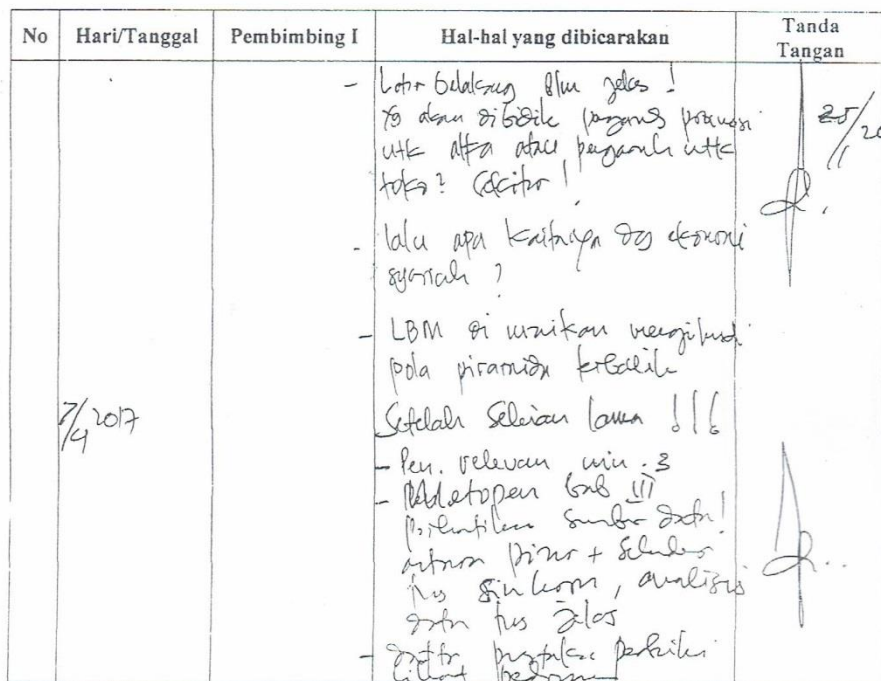 No Hari/Tanggal Pembimbing I Hal-hal yang dibicarakan Tanda Tangan
- Latar belakang blm jelas !
yg akan dibidik promosi
utk atau pengaruh utk
toko?
- lalu apa kaitnya dg ekonomi
syariah ?
- LBM di uraikan mengikuti
pola piramida terbalik
7/4 2017 Setelah sekian lama !!!
- Pen. relevan min. 3
- Metopen bab III
Perhatikan sumber data!
antara primer + sekunder
hrs sinkron, analisis
data hrs jelas
- daftar pustaka perbaiki
lihat pedoman